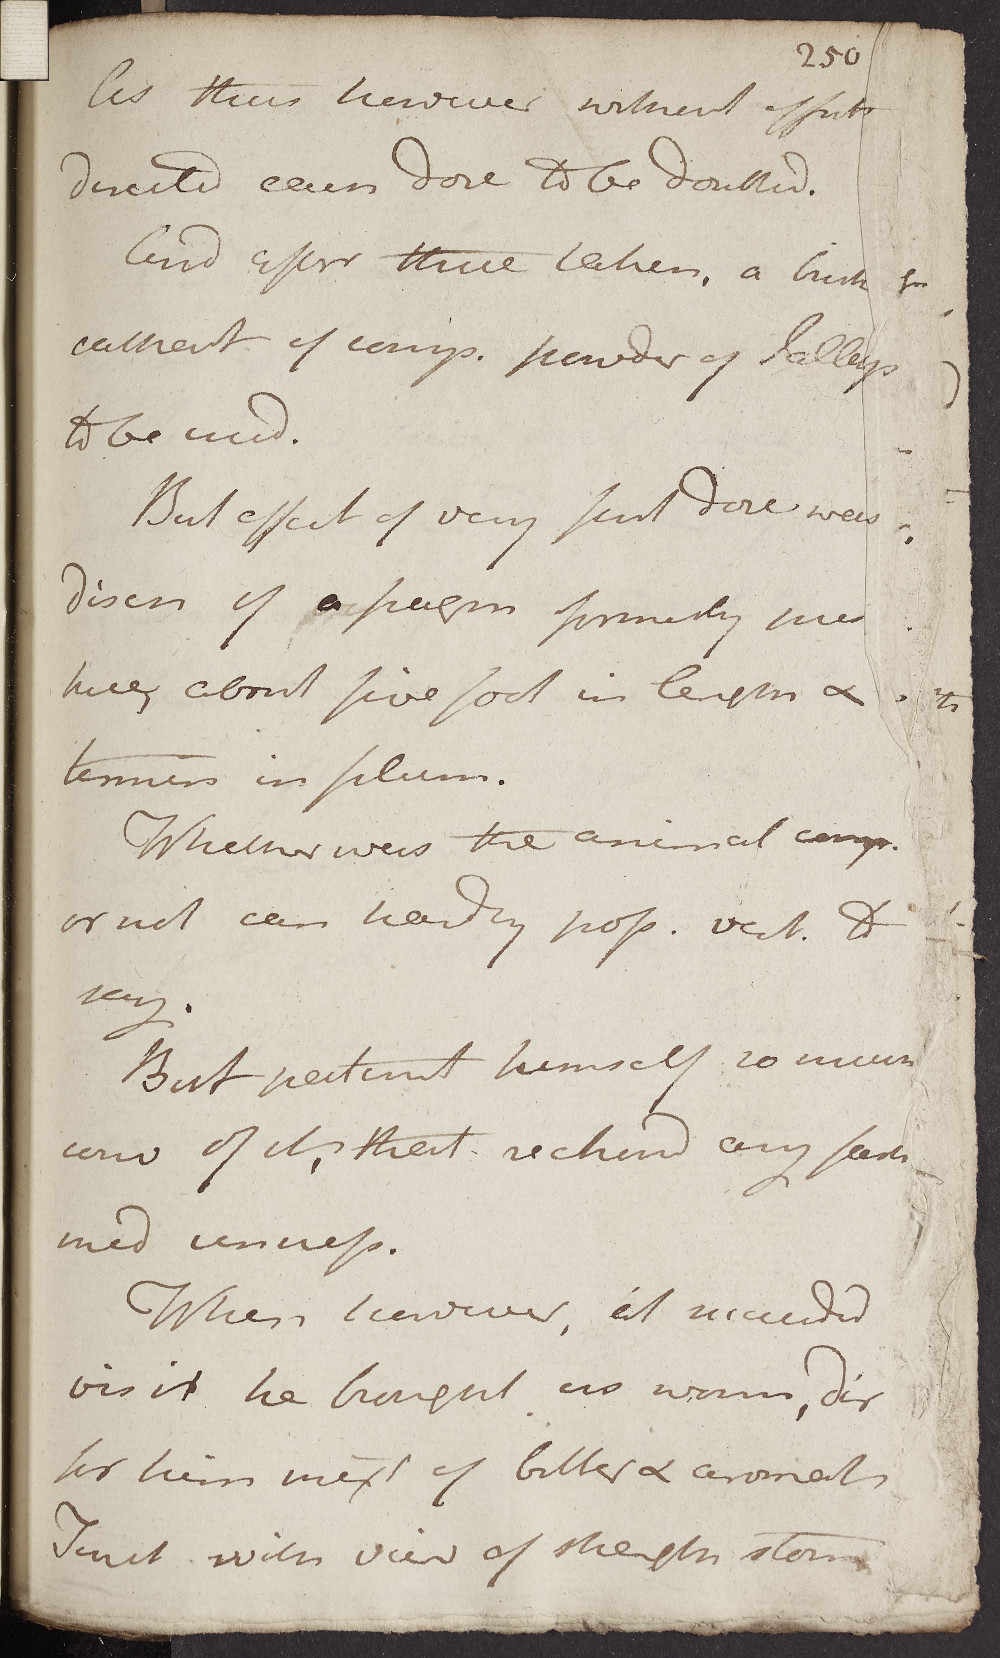 250
As this however without effect
directed even dose to be doubled.
And after three taken, a brisk
cathart of comp. powder of Jallap
to be used.
But effect of very first dose was
discn of a fragm formerly ment
tully about five foot in length &
termin in plum.
Whether was the animal comp.
or not can hardly poss. vent. to
say.
But patient himself so much
conv of it, that reckond any farth
med unness.
When however, at succeedd
visit he brought us worm, dir
for him mext of bitter & aromatic
Tinct with view of strength stom